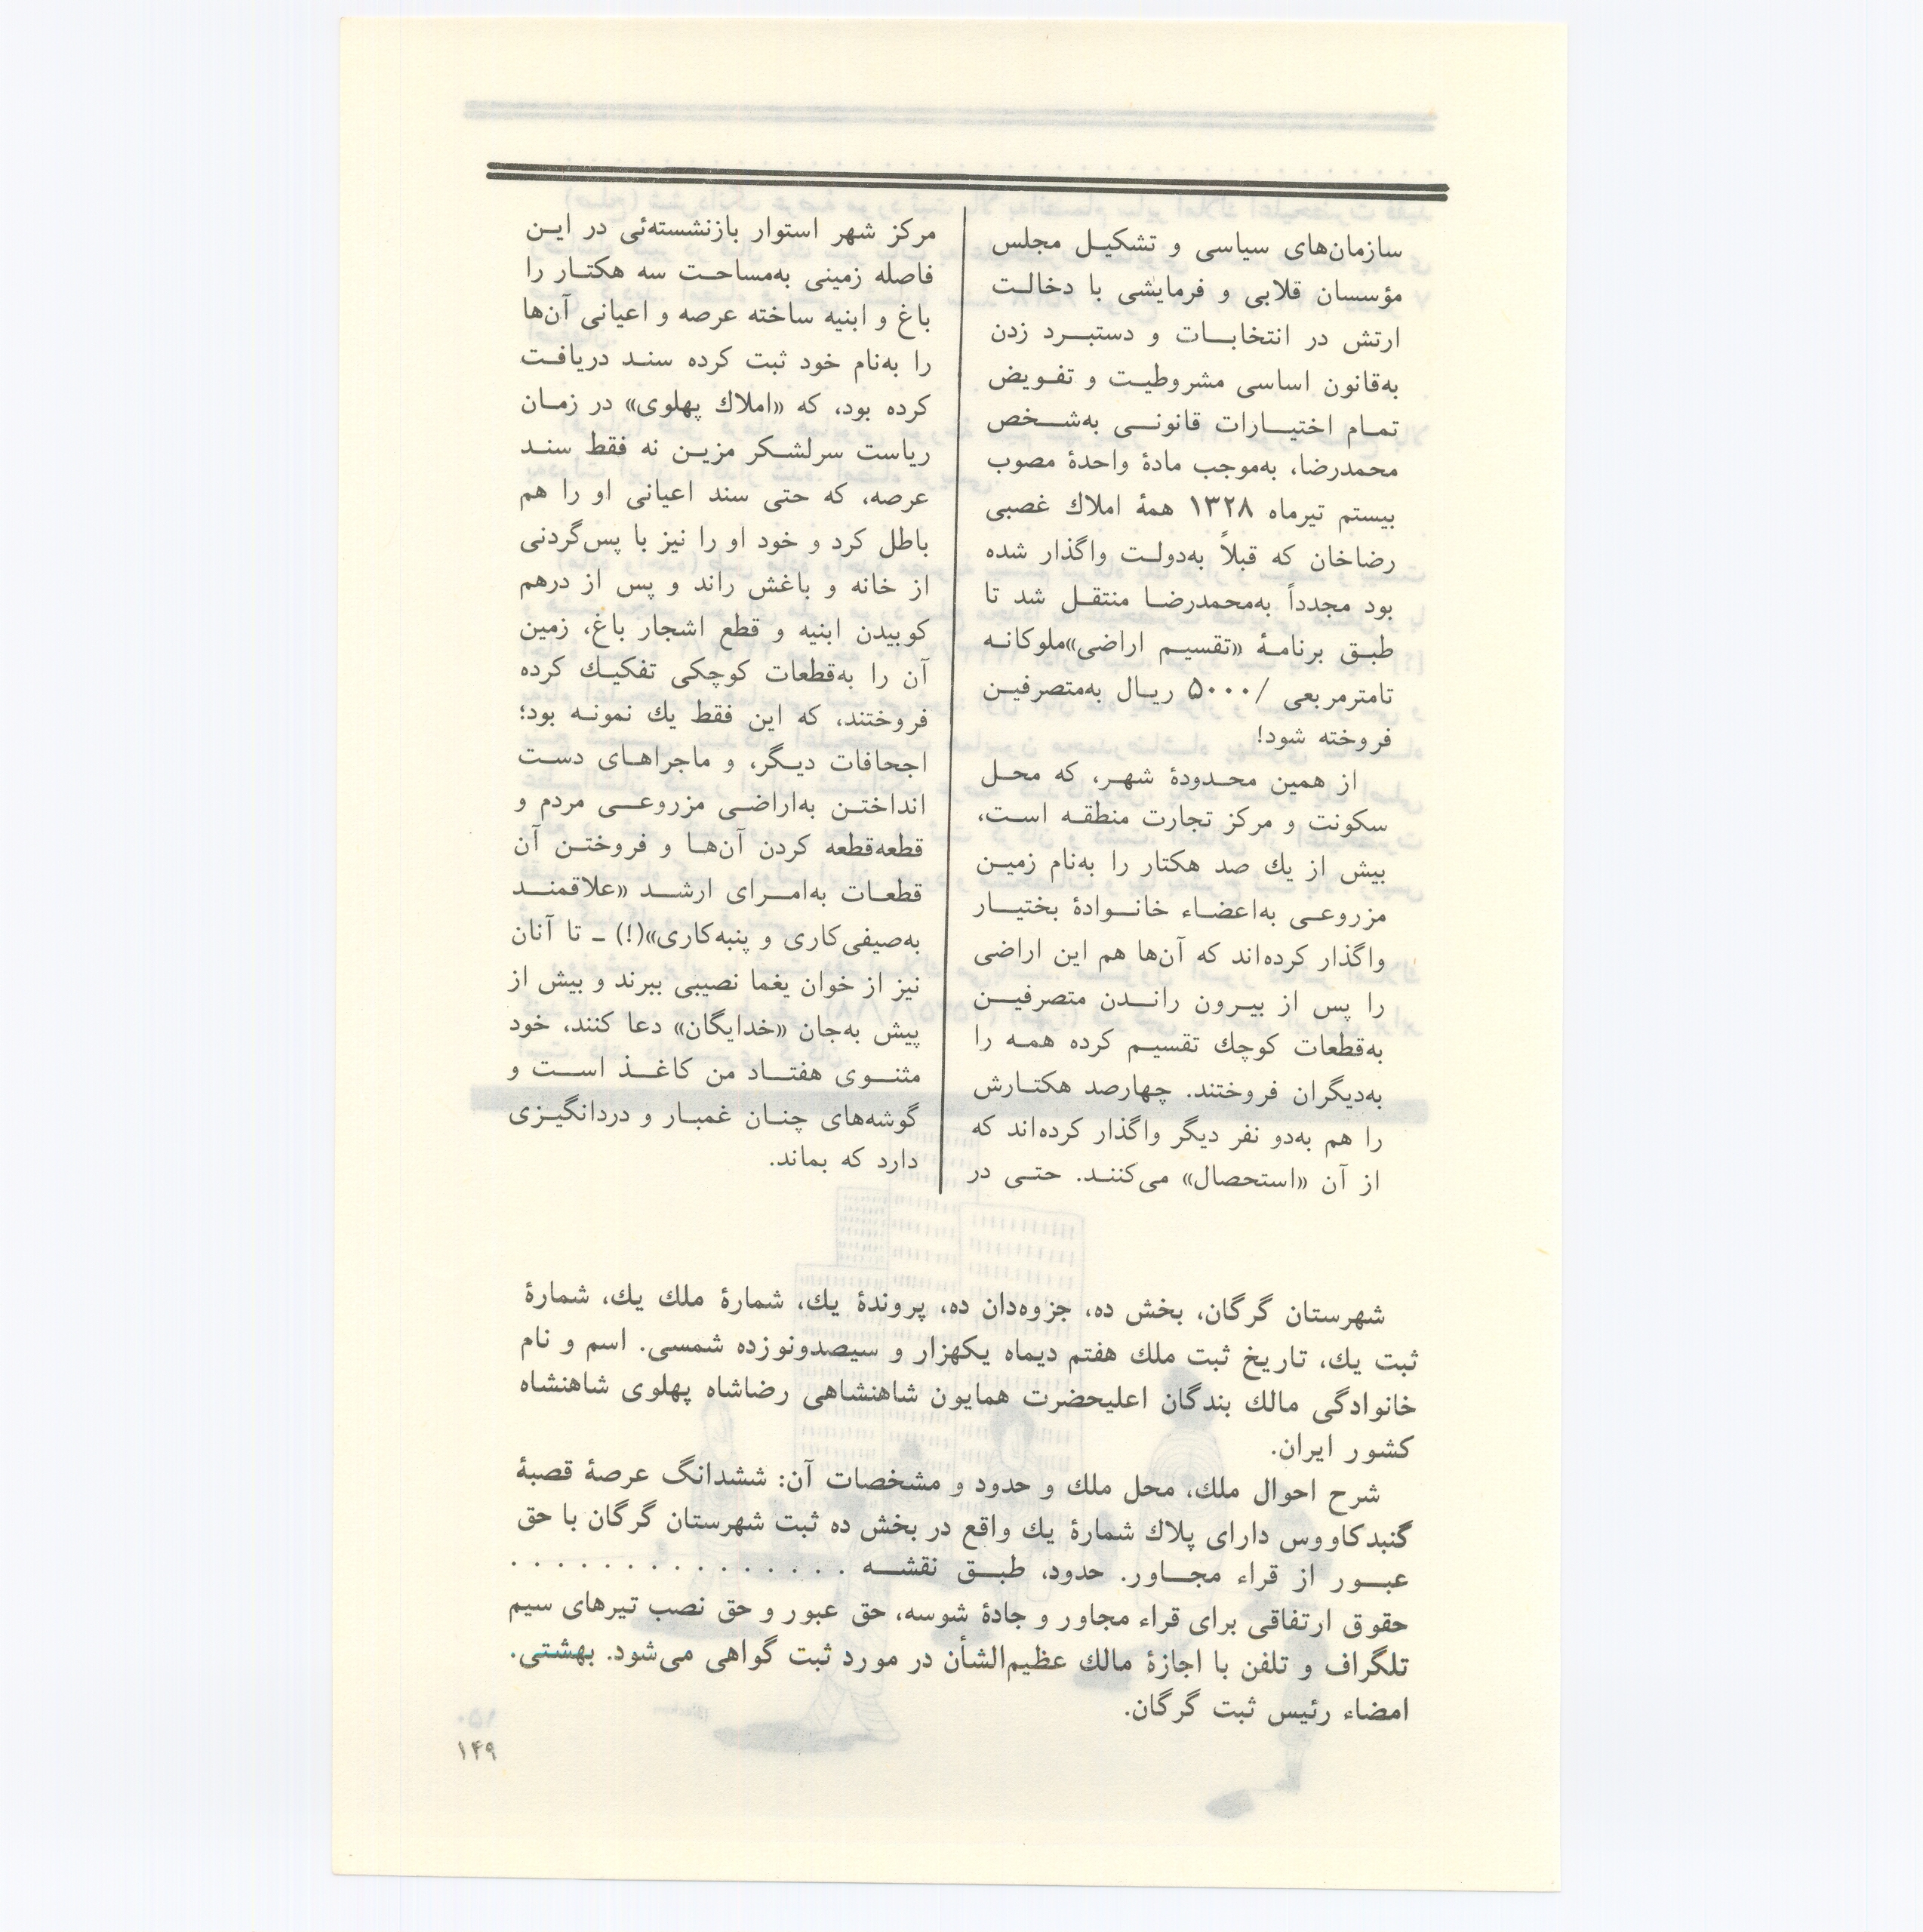 سازمان‌های سیاسی و تشکیل مجلس
مؤسسان قلابی و فرمایشی با دخالت
ارتش در انتخابات و دستبرد زدن
به‌قانون اساسی مشروطیت و تفویض
تمام اختیارات قانونی به‌شخص
محمدرضا، به‌موجب مادهٔ واحدهٔ مصوب
بیستم تیرماه ۱۳۲۸ همهٔ املاك غصبی
رضاخان که قبلاً به‌دولت واگذار شده
بود مجدداً به‌محمدرضا منتقل شد تا
طبق برنامهٔ «تقسیم اراضی»ملوکانه
تامترمربعی /۵۰۰۰ ریال به‌متصرفین
فروخته شود!
از همین محدودهٔ شهر، که محل
سکونت و مرکز تجارت منطقه است،
بیش از یك صد هکتار را به‌نام زمین
مزروعی به‌اعضاء خانوادهٔ بختیار
واگذار کرده‌اند که آن‌ها هم این اراضی
را پس از بیرون راندن متصرفین
به‌قطعات کوچك تقسیم کرده همه را
به‌دیگران فروختند. چهارصد هکتارش
را هم به‌دو نفر دیگر واگذار کرده‌اند که
از آن «استحصال» می‌کنند. حتی در
مرکز شهر استوار بازنشسته‌ئی در این
فاصله زمینی به‌مساحت سه هکتار را
باغ و ابنیه ساخته عرصه و اعیانی آن‌ها
را به‌نام خود ثبت کرده سند دریافت
کرده بود، که «املاك پهلوی» در زمان
ریاست سرلشکر مزین نه فقط سند
عرصه، که حتی سند اعیانی او را هم
باطل کرد و خود او را نیز با پس‌گردنی
از خانه و باغش راند و پس از درهم
کوبیدن ابنیه و قطع اشجار باغ، زمین
آن را به‌قطعات کوچکی تفکیك کرده
فروختند، که این فقط یك نمونه بود؛
اجحافات دیگر، و ماجراهای دست
انداختن به‌اراضی مزروعی مردم و
قطعه‌قطعه کردن آن‌ها و فروختن آن
قطعات به‌امرای ارشد «علاقمند
به‌صیفی‌کاری و پنبه‌کاری»(!) ـ تا آنان
نیز از خوان یغما نصیبی ببرند و بیش از
پیش به‌جان «خدایگان» دعا کنند، خود
مثنوی هفتاد من کاغذ است و
گوشه‌های چنان غمبار و دردانگیزی
دارد که بماند.
شهرستان گرگان، بخش ده، جزوه‌دان ده، پروندهٔ یك، شمارهٔ ملك یك، شمارهٔ
ثبت یك، تاریخ ثبت ملك هفتم دیماه یکهزار و سیصدونوزده شمسی. اسم و نام
خانوادگی مالك بندگان اعلیحضرت همایون شاهنشاهی رضاشاه پهلوی شاهنشاه
کشور ایران.
شرح احوال ملك، محل ملك و حدود و مشخصات آن: ششدانگ عرصهٔ قصبهٔ
گنبدکاووس دارای پلاك شمارهٔ یك واقع در بخش ده ثبت شهرستان گرگان با حق
عبور از قراء مجاور. حدود، طبق نقشه . . . . . . . . . . . . . . .
حقوق ارتفاقی برای قراء مجاور و جادهٔ شوسه، حق عبور و حق نصب تیرهای سیم
تلگراف و تلفن با اجازهٔ مالك عظیم‌الشأن در مورد ثبت گواهی می‌شود. بهشتی.
امضاء رئیس ثبت گرگان.
۱۴۹